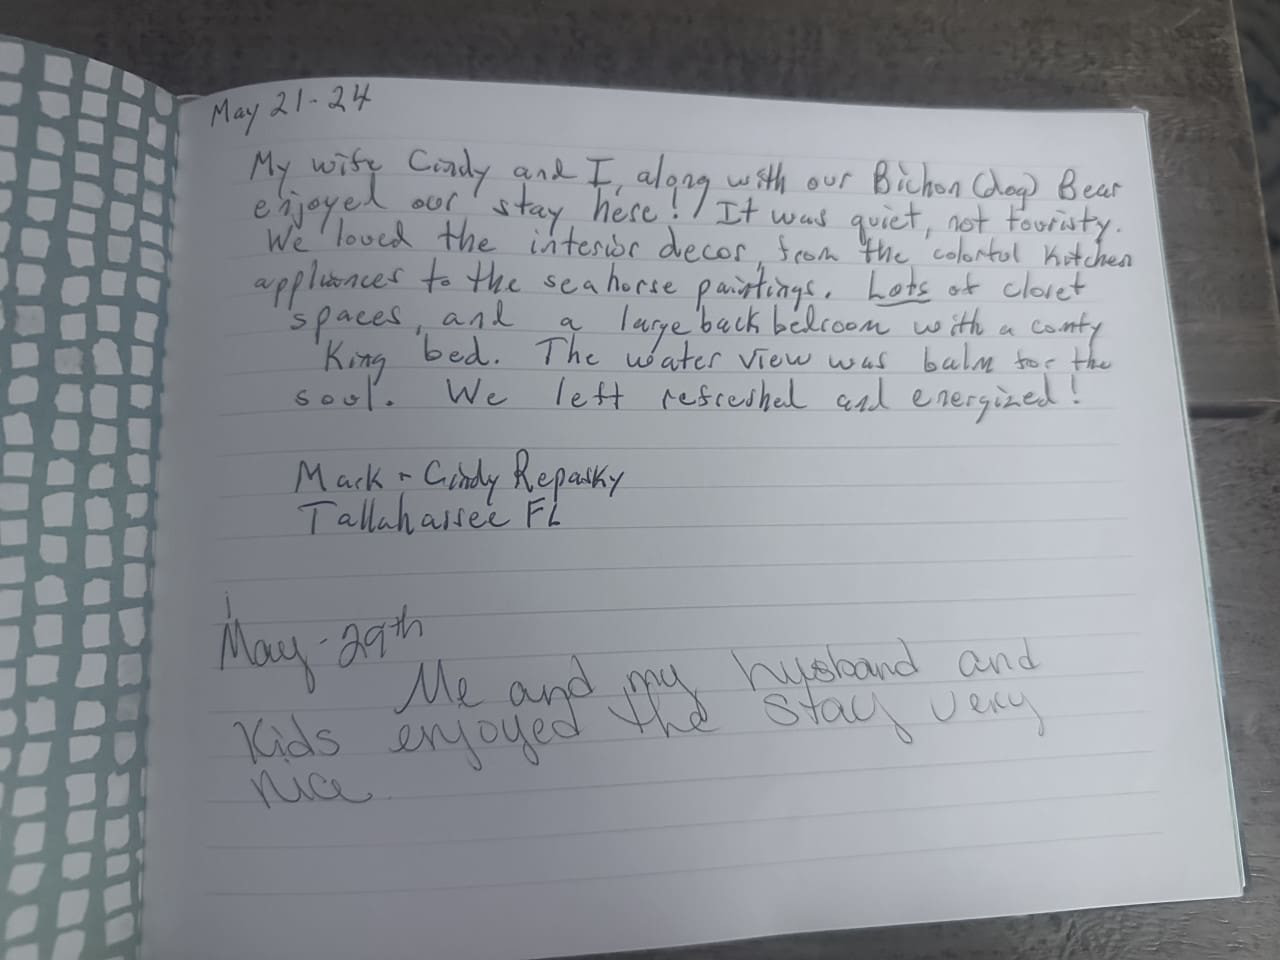 May 21-24
My wife Cindy and I, along with our Bichon (dog) Bear
enjoyed our stay here! It was quiet, not touristy.
We loved the interior decor, from the colorful kitchen
appliances to the seahorse paintings. Lots of closet
spaces, and a large back bedroom with a comfy
King bed. The water view was balm for the
soul. We left refreshed and energized!
Mack - Cindy Repasky
Tallahassee FL
May - 29th
Me and my husband and
Kids enjoyed the stay very
nice